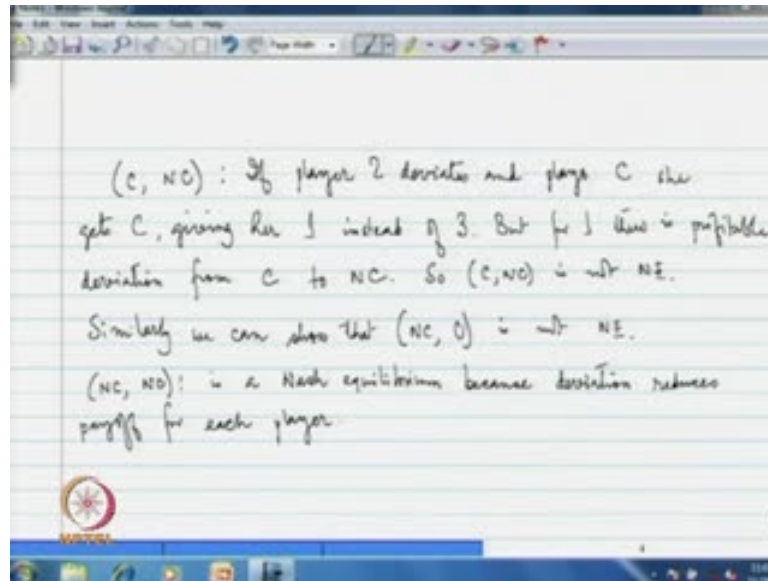 Edit View Insert Actions Tools Help
Page Width
(C, NC) : If player 2 deviates and plays C she
gets C, giving her 1 instead of 3. But for 1 there is profitable
deviation from C to NC. So (C, NC) is not NE.
Similarly we can show that (NC, C) is not NE.
(NC, NC): is a Nash equilibrium because deviation reduces
payoff for each player.
NPTEL